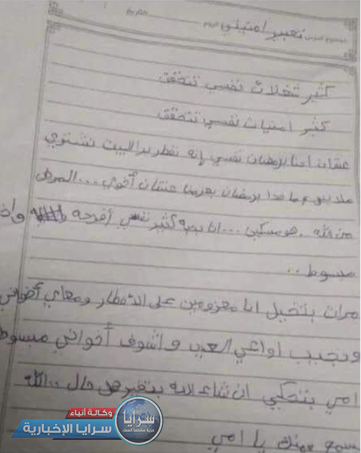 تعبير امنيتي
كثير شغلات نفسي تتحقق
كثير امنيات نفسي تتحقق
عشان احنا برمضان نفسي انه نفطر بالبيت نشتوي
ملابيع ما حدا برمضان يعزمنا عشان أخوي ... المرض
من الله . هو مسكين ... انا بحبه كثير نفسي أفرحه واخ
مبسوط ..
مرات بتخيل انا معزومين على الافطار ومعاي أخواتي
ونجيب اواعي العيد واشوف أخواتي مبسوط
امي بتحكي ان شاء الله بتفرج هي حال .. الله
يسمع منك يا امي
وكالة أنباء
سرايا الإخبارية
سرايا